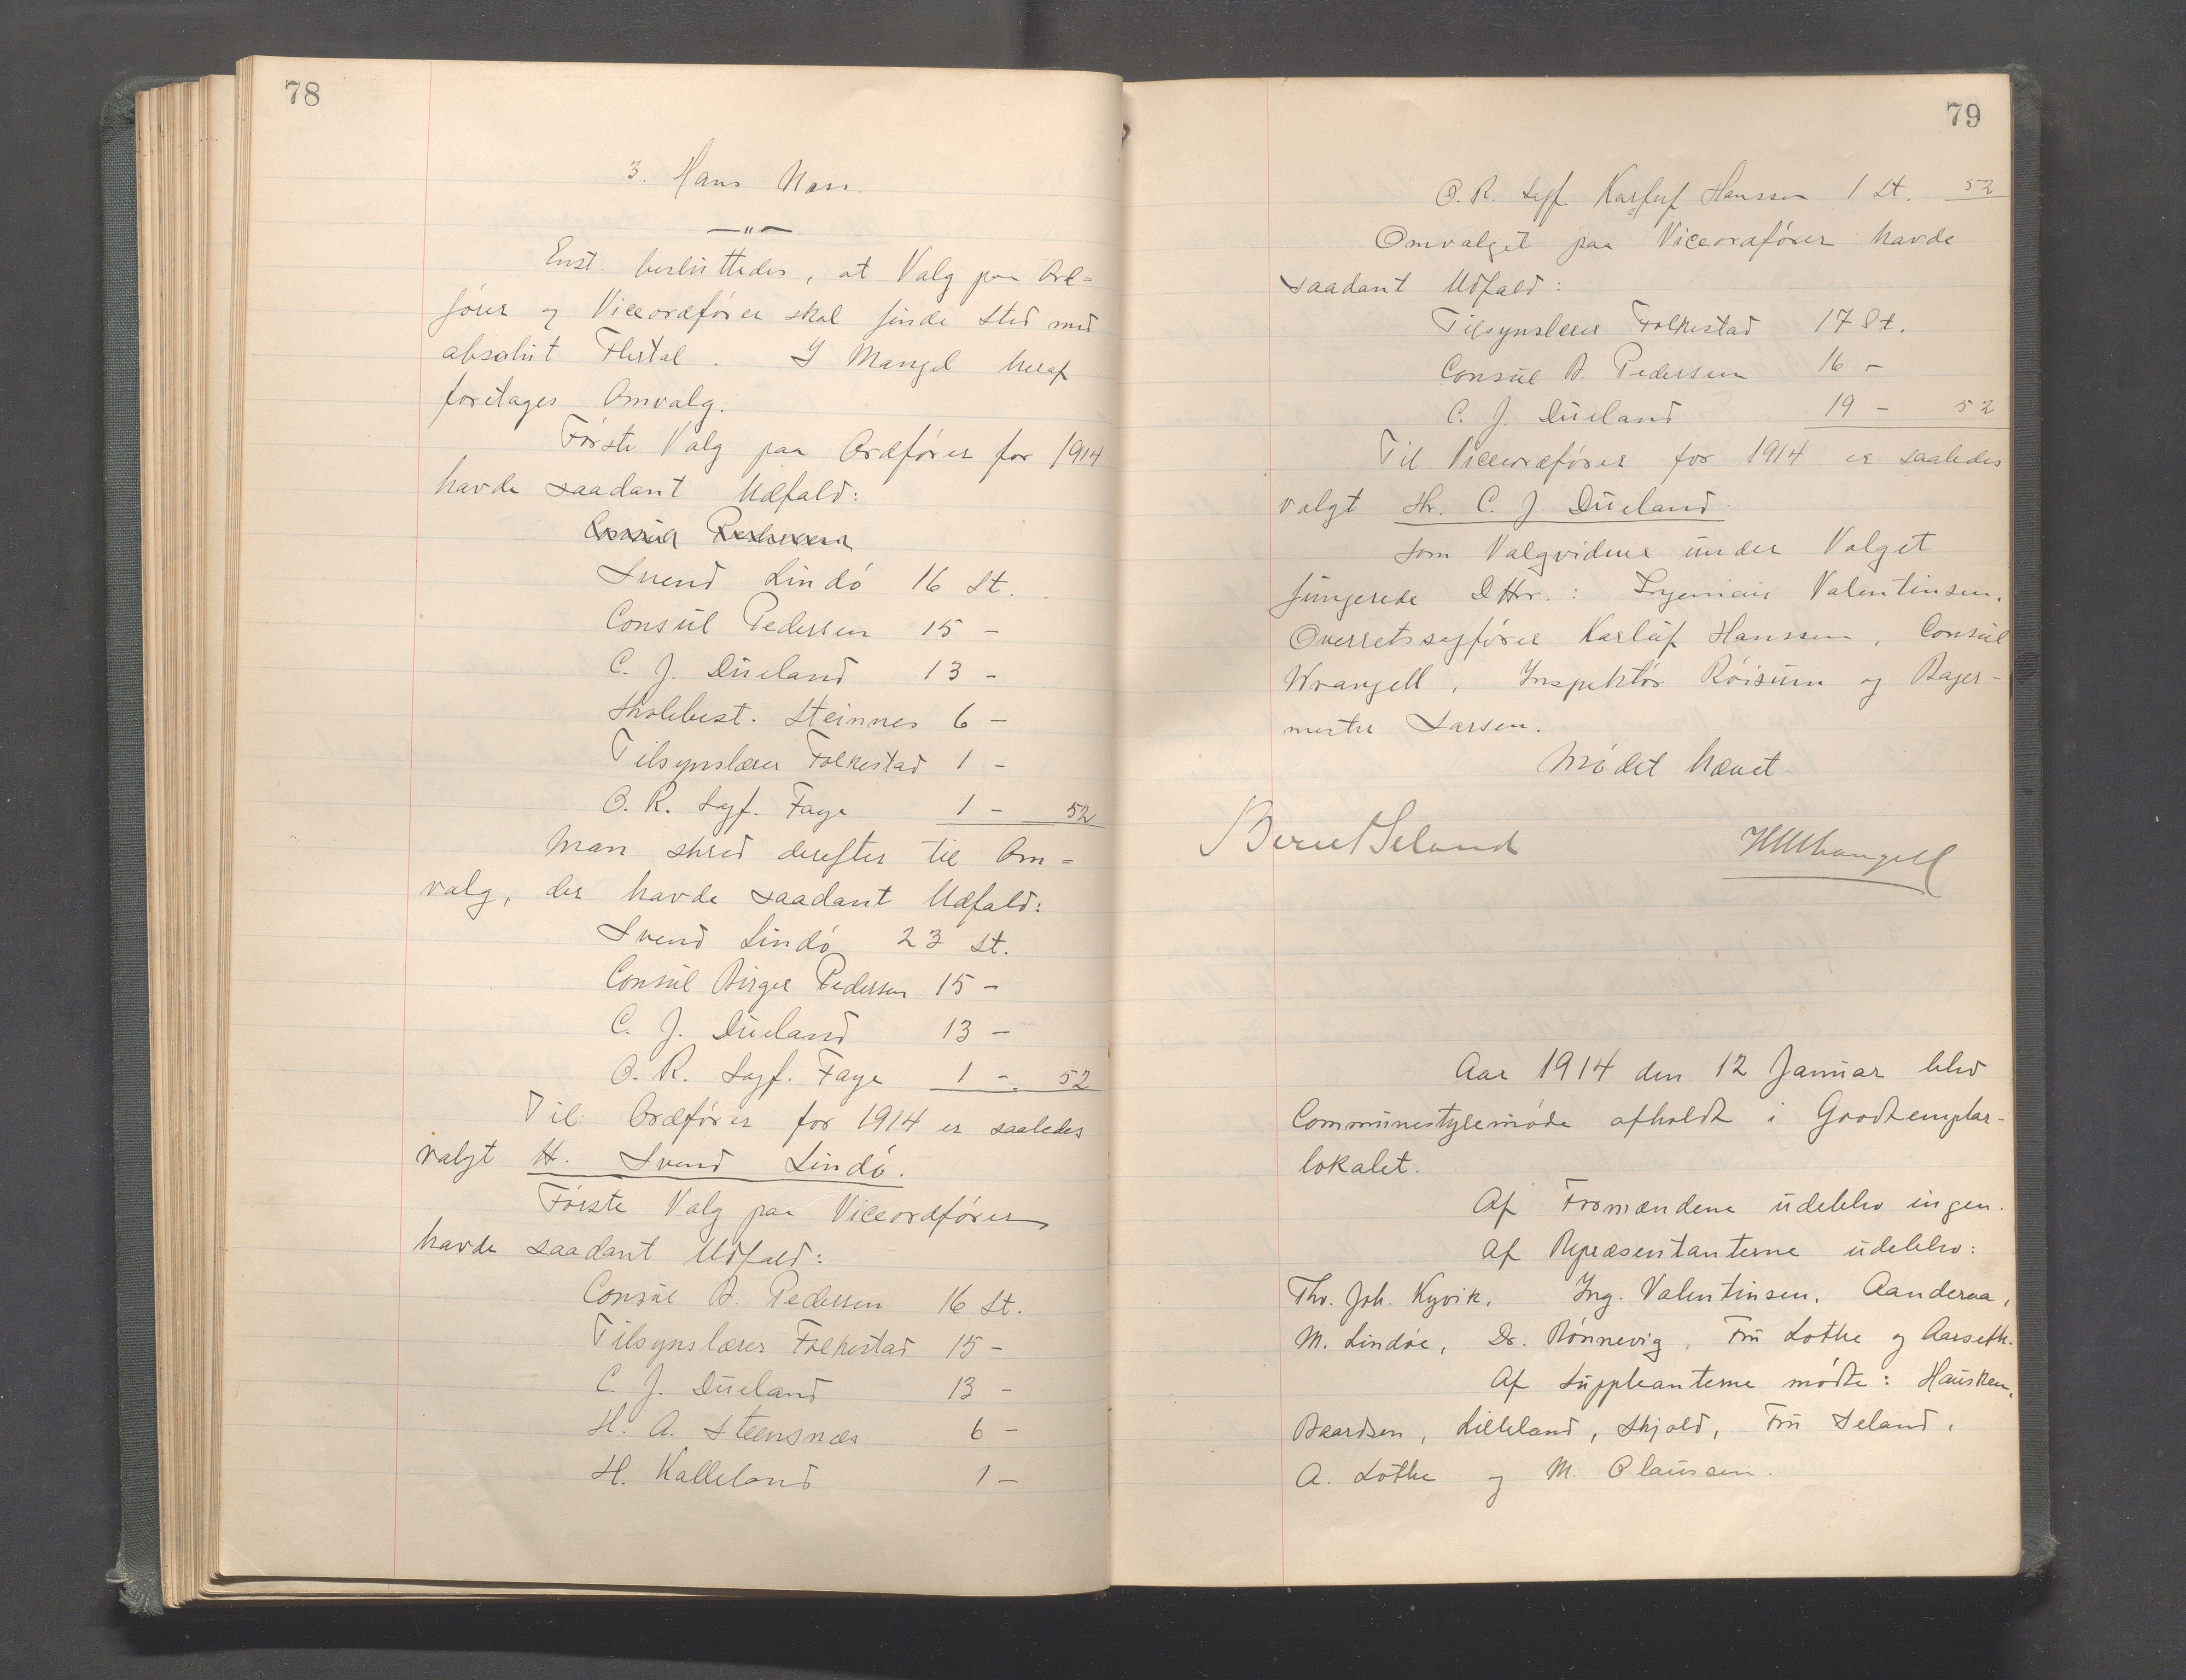 78
3. Hans Næss.
—"—
Enst. besluttedes, at Valg paa Ord=
fører og Viceordfører skal finde Sted med
absolut Flertal. I Mangel heraf
foretages Omvalg.
Første Valg paa Ordfører for 1914
havde saadant Udfald:
Consul Pedersen
Svend Lindø 16 St.
Consul Pedersen 15 –
C. J. Dueland 13 –
Skolebest. Steinnes 6 –
Tilsynslærer Folkestad 1 –
O. R. Sagf. Faye 1 – 52
Man skred derefter til Om=
valg, der havde saadant Udfald:
Svend Lindø 23 St.
Consul Birger Pedersen 15 –
C. J. Dueland 13 –
O. R. Sagf. Faye 1 – 52
Til Ordfører for 1914 er saaledes
valgt H. Svend Lindø.
Første Valg paa Viceordfører
havde saadant Udfald:
Consul B. Pedersen 16 St.
Tilsynslærer Folkestad 15 –
C. J. Dueland 13 –
H. A. Steensnæs 6 –
H. Kalleland 1 –
79
O. R. Sagf. Karluf Hanssen 1 St. 52
Omvalget paa Viceordfører havde
saadant Udfald:
Tilsynslærer Folkestad 17 St.
Consul B. Pedersen 16 –
C. J. Dueland 19 – 52
Til Viceordfører for 1914 er saaledes
valgt Hr. C. J. Dueland.
Som Valgvidner under Valget
fungerede DHrr.: Ingeniør Valentinsen,
Overretssagfører Karluf Hanssen, Consul
Wrangell, Inspektør Røisum og Bager-
mester Larsen.
Mødet hævet
Bernt Seland HWrangell
Aar 1914 den 12 Januar blev
Communestyremøde afholdt i Goodtemplar-
lokalet.
Af Formændene udeblev ingen.
Af Repræsentanterne udeblev:
Thv. Joh. Kyvik, Ing. Valentinsen, Aanderaa,
M. Lindøe, Dr. Rønnevig, Fru Lothe og Aarseth.
Af Suppleanterne mødte: Hausken,
Baardsen, Lilleland, Skjold, Fru Seland,
A. Lothe og M. Claussen.